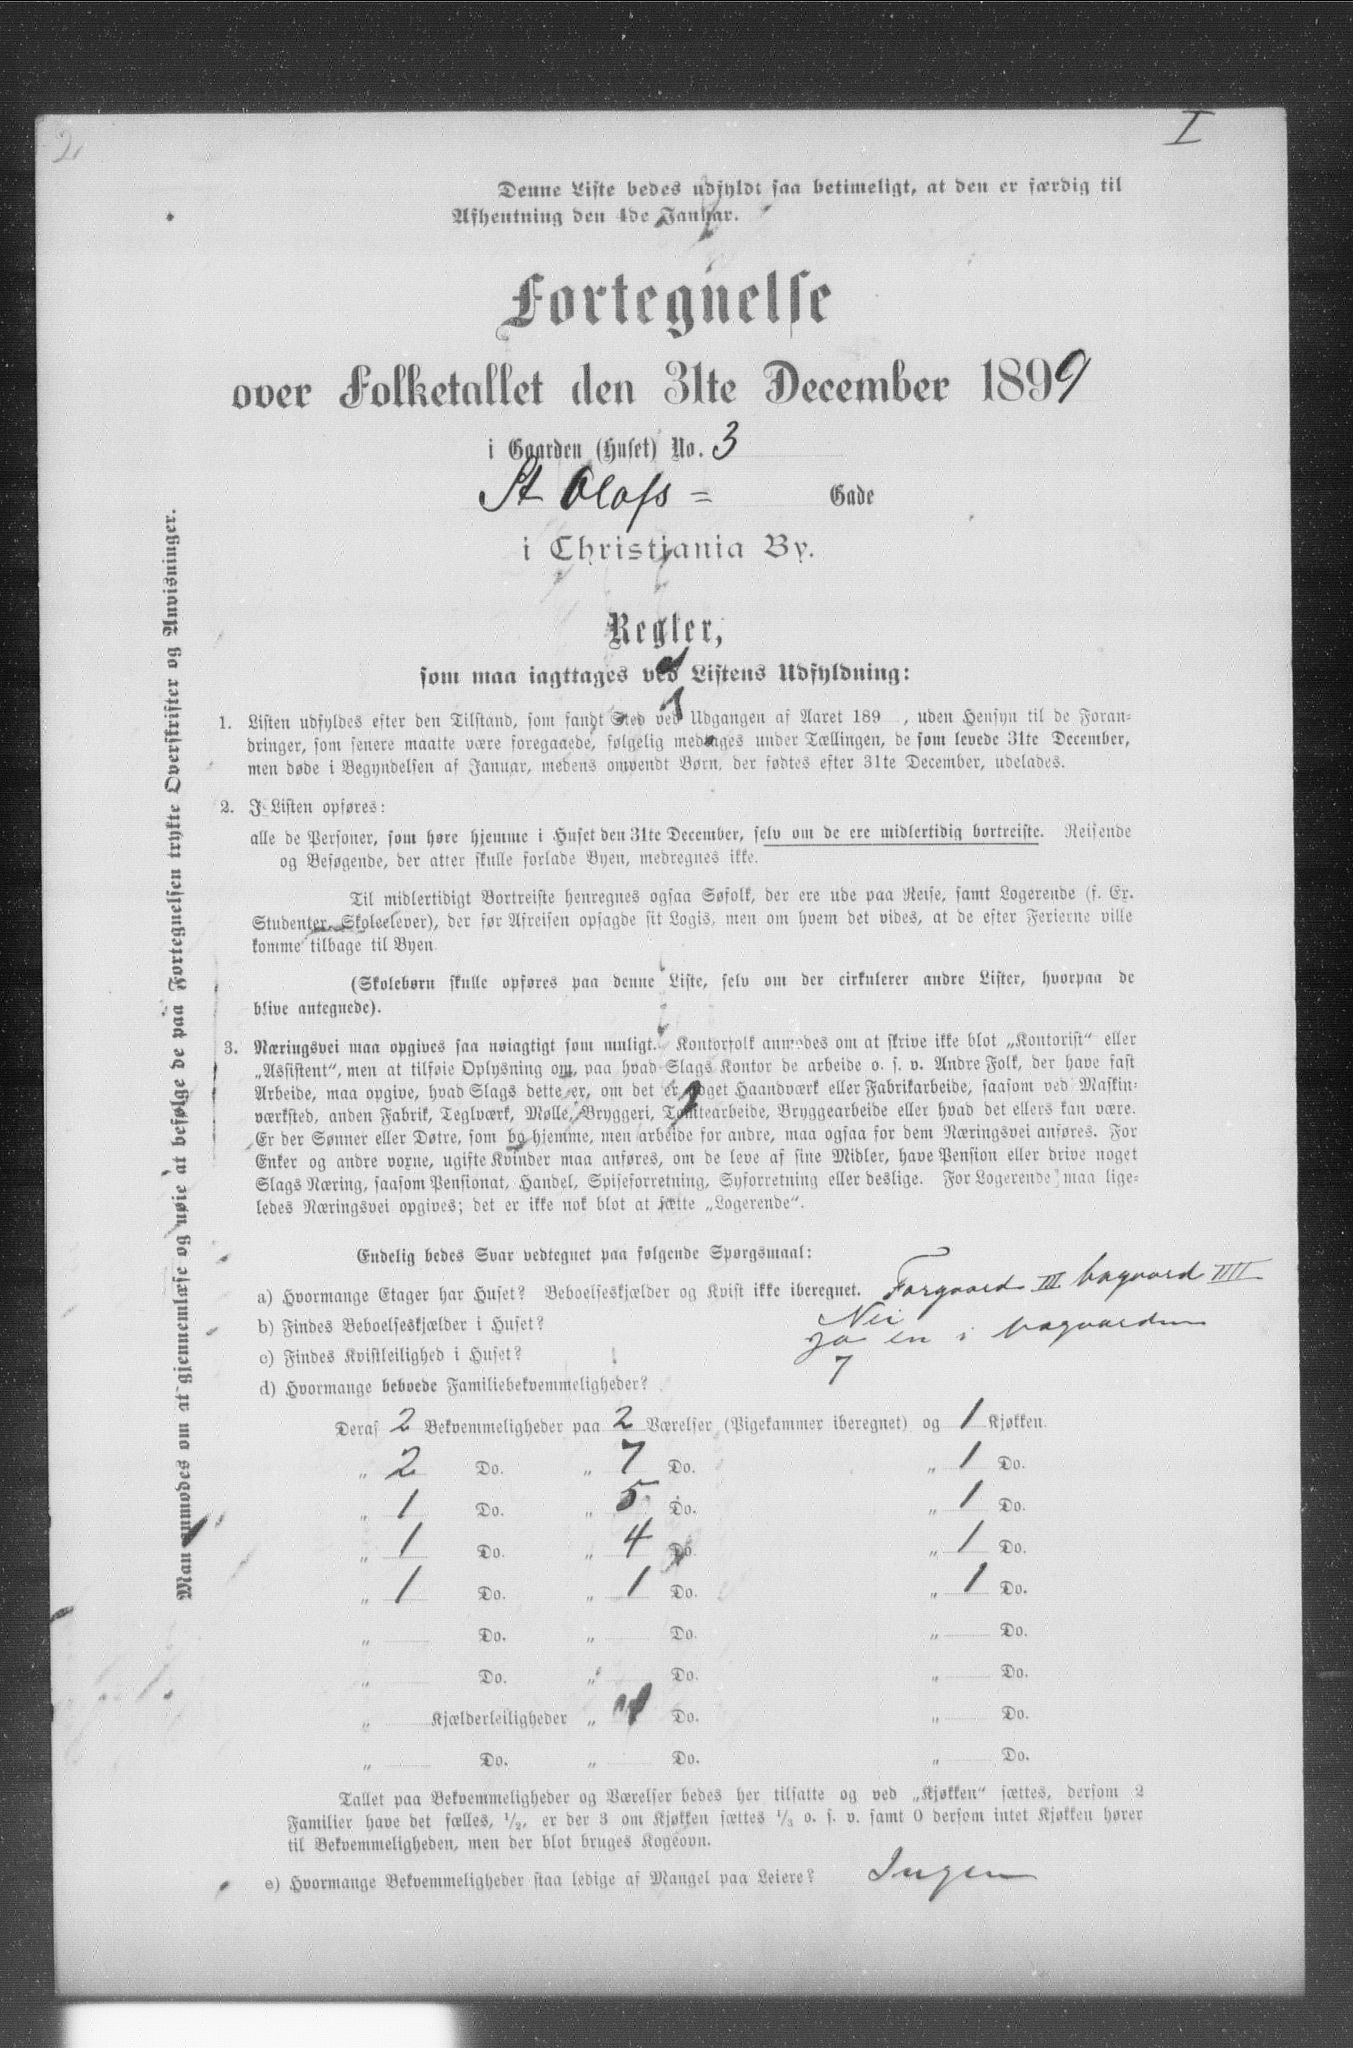 2
I
Denne Liste bedes udfyldt saa betimeligt, at den er færdig til
Afhentning den 4de Januar.
Fortegnelse
over Folketallet den 31te December 1899
i Gaarden (Huset) No. 3
St Olafs = Gade
i Christiania By.
Regler,
som maa iagttages ved Listens Udfyldning:
1. Listen udfyldes efter den Tilstand, som fandt Sted ved Udgangen af Aaret 189 , uden Hensyn til de Foran-
dringer, som senere maatte være foregaaede, følgelig medtages under Tællingen, de som levede 31te December,
men døde i Begyndelsen af Januar, medens omvendt Børn, der fødtes efter 31te December, udelades.
2. I Listen opføres:
alle de Personer, som høre hjemme i Huset den 31te December, selv om de ere midlertidig bortreiste. Reisende
og Besøgende, der atter skulle forlade Byen, medregnes ikke.
Til midlertidigt Bortreiste henregnes ogsaa Søfolk, der ere ude paa Reise, samt Logerende (f. Ex.
Studenter, Skoleelever), der før Afreisen opsagde sit Logis, men om hvem det vides, at de efter Ferierne ville
komme tilbage til Byen
(Skolebørn skulle opføres paa denne Liste, selv om der cirkulerer andre Lister, hvorpaa de
blive antegnede).
3. Næringsvei maa opgives saa nøiagtigt som muligt. Kontorfolk anmodes om at skrive ikke blot „Kontorist“ eller
„Assistent“, men at tilføie Oplysning om, paa hvad Slags Kontor de arbeide o. s. v. Andre Folk, der have fast
Arbeide, maa opgive, hvad Slags dette er, om det er noget Haandværk eller Fabrikarbeide, saasom ved Maskin-
værksted, anden Fabrik, Teglværk, Mølle, Bryggeri, Tomtearbeide, Bryggearbeide eller hvad det ellers kan være.
Er der Sønner eller Døtre, som bo hjemme, men arbeide for andre, maa ogsaa for dem Næringsvei anføres. For
Enker og andre voxne, ugifte Kvinder maa anføres, om de leve af sine Midler, have Pension eller drive noget
Slags Næring, saasom Pensionat, Handel, Spiseforretning, Syforretning eller deslige. For Logerende maa lige-
ledes Næringsvei opgives; det er ikke nok blot at sætte „Logerende“.
Endelig bedes Svar vedtegnet paa følgende Spørgsmaal:
a) Hvormange Etager har Huset? Beboelseskjælder og Kvist ikke iberegnet. Forgaard III bagaard IIII
b) Findes Beboelseskjælder i Huset? Nei
c) Findes Kvistleilighed i Huset? Ja en i bagaarden
d) Hvormange beboede Familiebekvemmeligheder? 7
Deraf 2 Bekvemmeligheder paa 2 Værelser (Pigekammer iberegnet) og 1 Kjøkken.
„ 2 Do. „ 7 Do. „ 1 Do.
„ 1 Do. „ 5 Do. „ 1 Do.
„ 1 Do. „ 4 Do. „ 1 Do.
„ 1 Do. „ 1 Do. „ 1 Do.
„ Do. „ Do. „ Do.
„ Do. „ Do. „ Do.
„ Kjælderleiligheder „ Do. „ Do.
„ Do. „ Do. „ Do.
Tallet paa Bekvemmeligheder og Værelser bedes her tilsatte og ved „Kjøkken“ sættes, dersom 2
Familier have det fælles, 1/2, er der 3 om Kjøkken sættes 1/3 o. s. v. samt 0 dersom intet Kjøkken hører
til Bekvemmeligheden, men der blot bruges Kogeovn.
e) Hvormange Bekvemmeligheder staa ledige af Mangel paa Leiere? Ingen
Man anmodes om at gjennemlæse og nøie at befølge de paa Fortegnelsen trykte Overskrifter og Anvisninger.